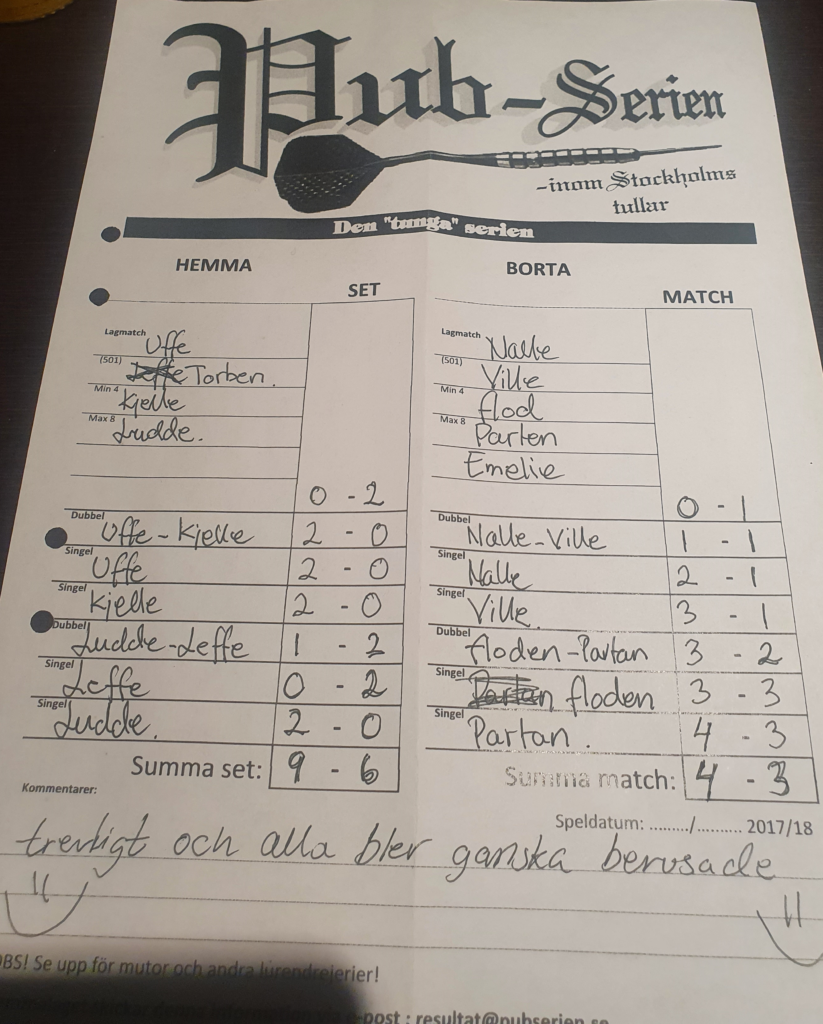 Pub-Serien
-inom Stockholms
tullar
Den "tunga" serien
HEMMA BORTA
SET MATCH
Lagmatch Uffe Lagmatch Nalle
(501) Leffe Torben. (501) Ville
Min 4 Kjelle Min 4 flod
Max 8 Ludde. Max 8 Parten
Emelie
0 - 2 0 - 1
Dubbel Uffe-Kjelle 2 - 0 Dubbel Nalle-Ville 1 - 1
Singel Uffe 2 - 0 Singel Nalle 2 - 1
Singel Kjelle 2 - 0 Singel Ville. 3 - 1
Dubbel Ludde-Leffe 1 - 2 Dubbel floden-Partan 3 - 2
Singel Leffe 0 - 2 Singel Partan floden 3 - 3
Singel Ludde. 2 - 0 Singel Partan. 4 - 3
Summa set: 9 - 6 Summa match: 4 - 3
Kommentarer:
Speldatum: ........./.......... 2017/18
trevligt och alla bler ganska berusade
OBS! Se upp för mutor och andra lurendrejerier!
e-post : resultat@pubserien.se